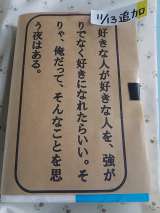 11/13追加
好きな人が好きな人を、強が
りでなく好きになれたらいい。そ
りゃ、俺だって、そんなことを思
う夜はある。